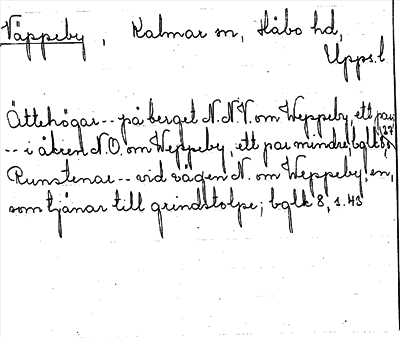 Väppeby, Kalmar sn, Håbo hd,
Upps.l.
Ättehögar -- på berget N.N.V. om Weppeby, ett par,
-- i åkren N.O. om Weppeby, ett par mindre, bglk 8, 27
Runstenar -- vid vägen N. om Weppeby, en,
som tjänar till grindstolpe; bglk 8, s. 43